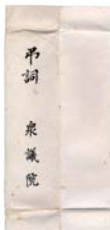 弔詞 衆議院